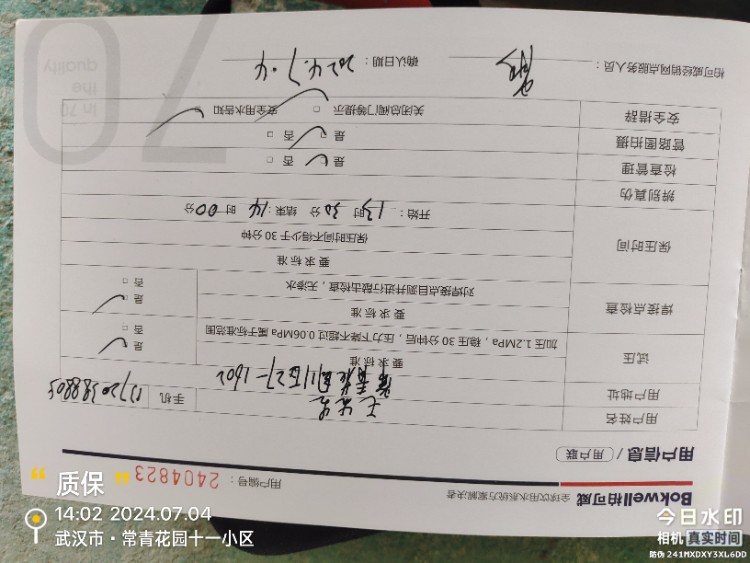 Bokwell柏可威 全球饮用水系统方案解决者
用户编号： 2404823
用户信息 / 用户联
用户姓名 王先生
用户地址 常青花园11区27-1602 手机
试压 要求标准
加压1.2MPa，稳压30分钟后，压力下降不超过0.06MPa属于标准范围
是 ✓
否
焊接点检查 要求标准
对焊接点目测并进行敲击检查，无渗水
是 ✓
否
保压时间 要求标准
保压时间不得少于30分钟
开始：13时30分 结束：14时00分
辨别真伪
检查管理 是 ✓ 否
管路图拍摄 是 ✓ 否
安全措辞 关闭总阀门等提示 安全用水告知 ✓
柏可威经销网点服务人员： 确认日期：2024.7.4
70
In 70
the
quality
质保
14:02 2024.07.04
武汉市·常青花园十一小区
今日水印
相机 真实时间
防伪 241MXDXY3XL6DD